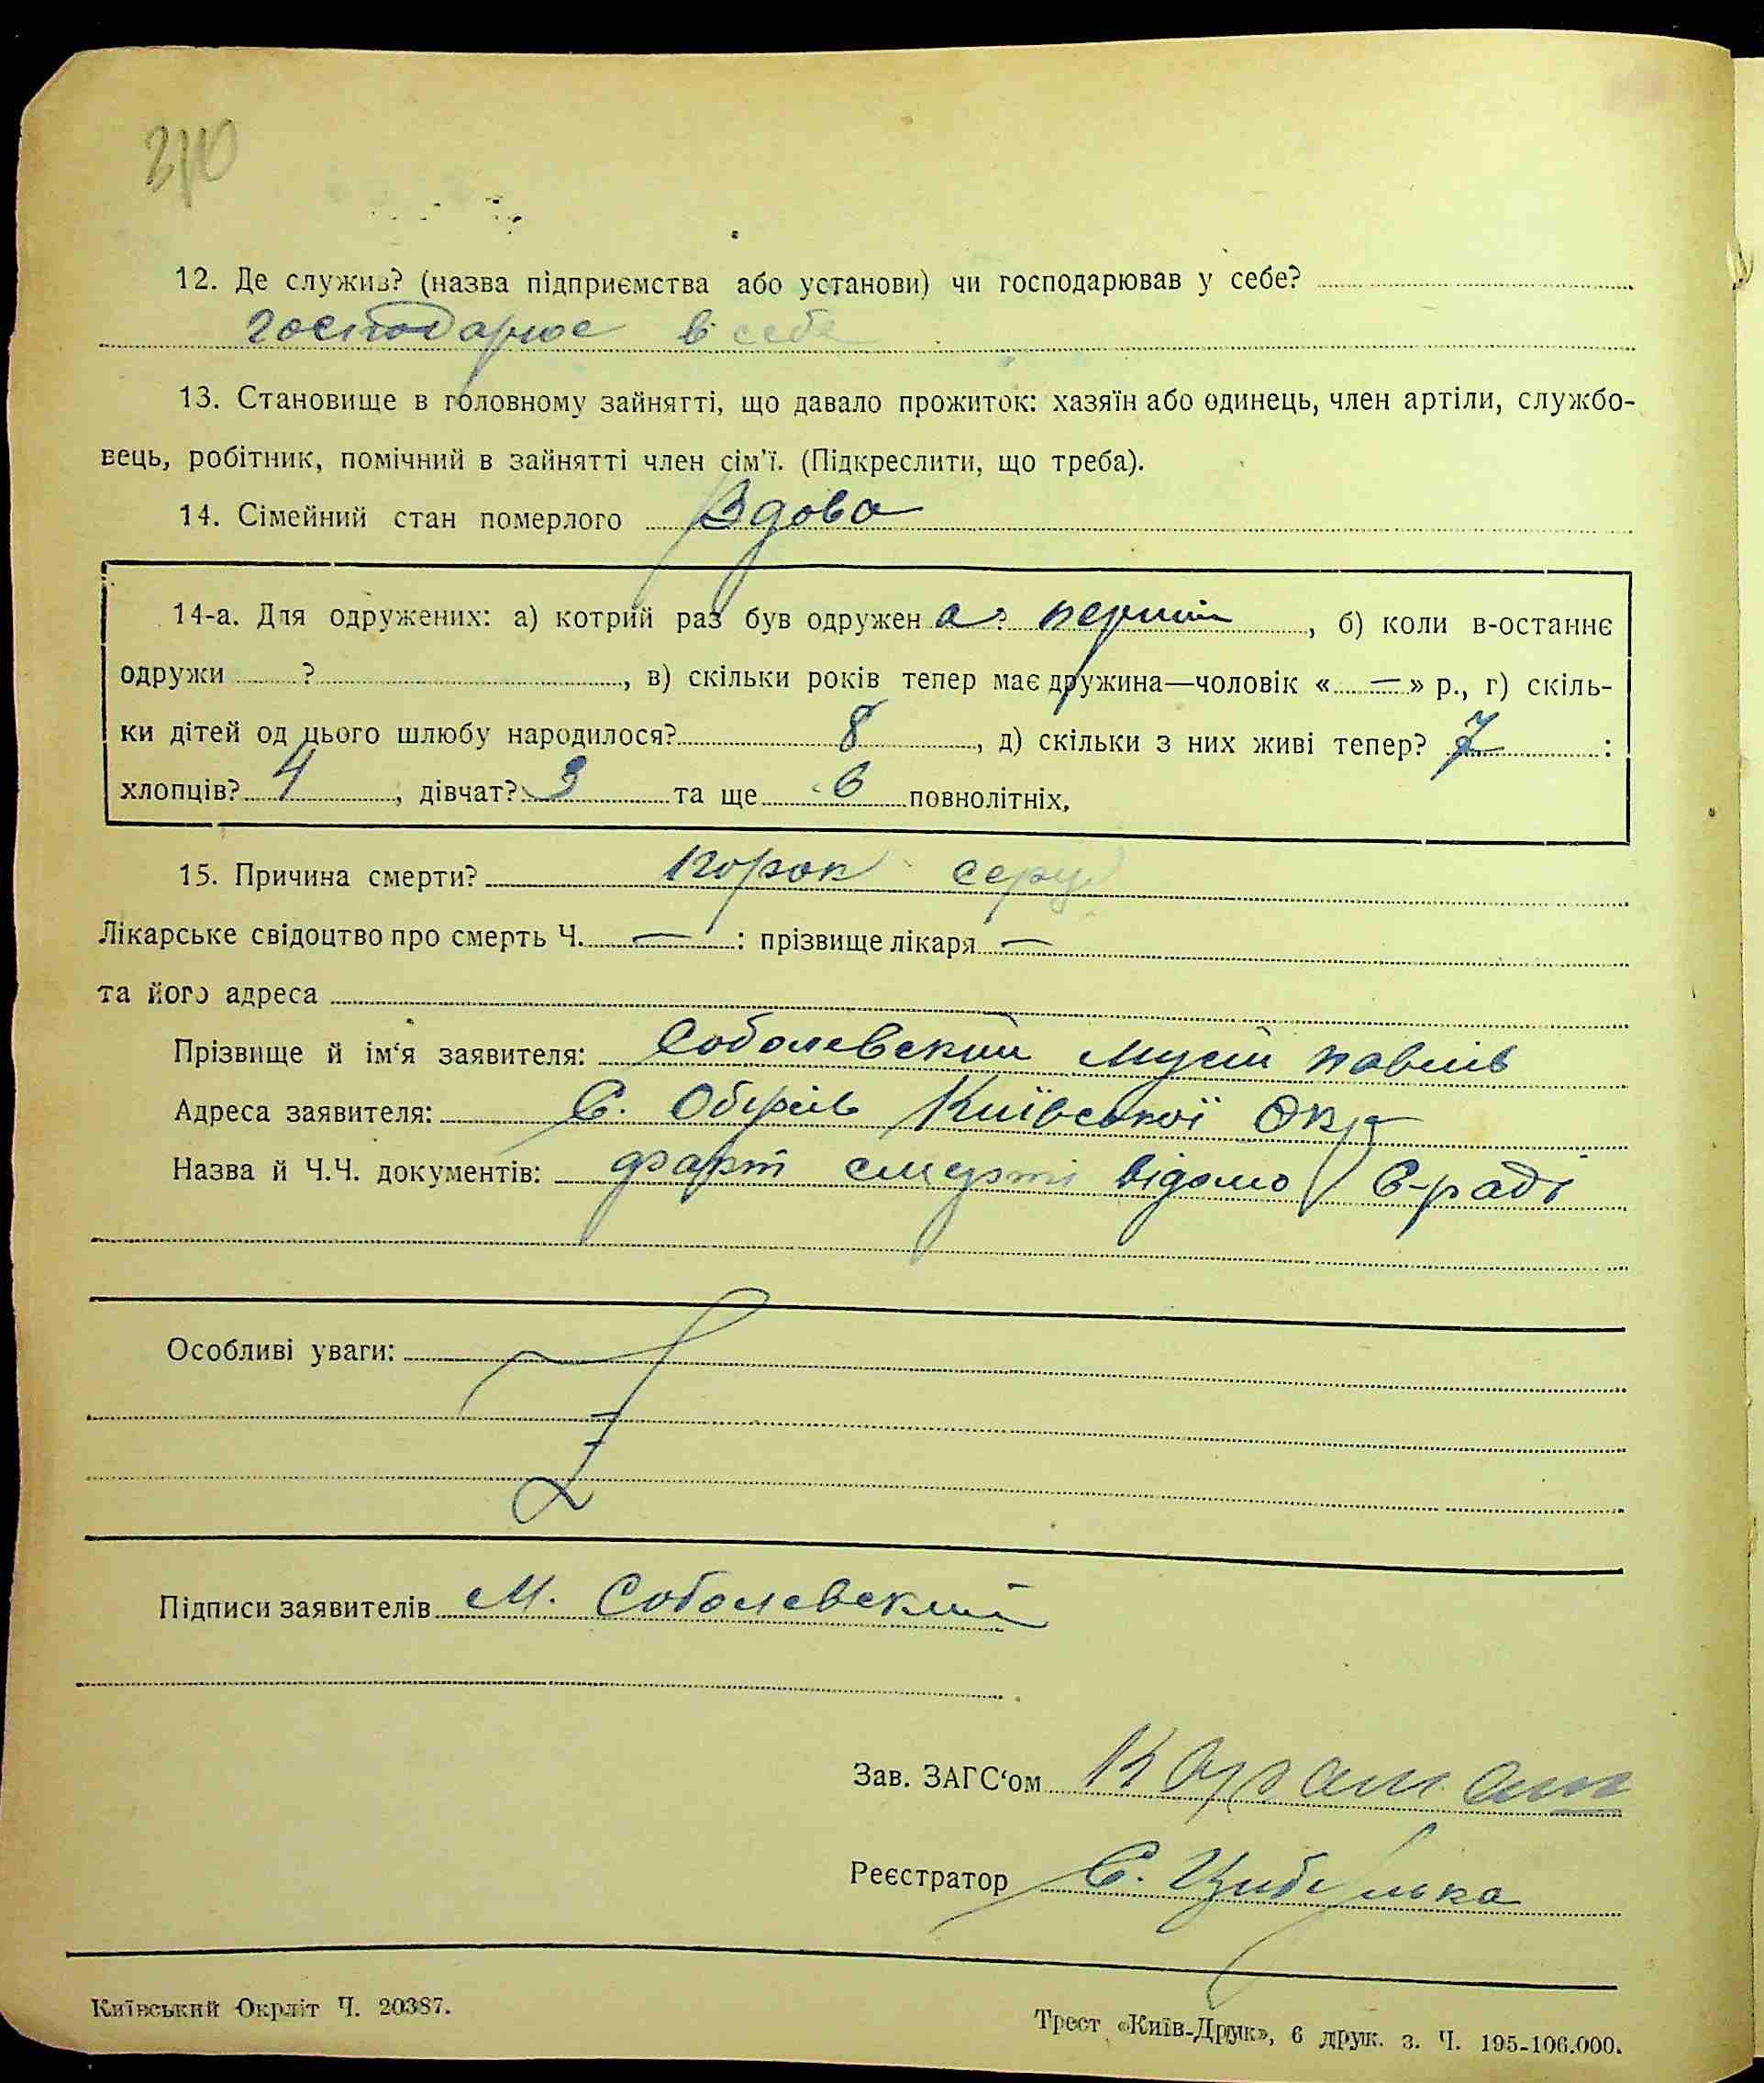 310
12. Де служив? (назва підприємства або установи) чи господарював у себе?
господарює в себе
13. Становище в головному зайнятті, що давало прожиток: хазяїн або одинець, член артіли, службо-
вець, робітник, помічний в зайнятті член сім'ї. (Підкреслити, що треба).
14. Сімейний стан померлого Вдова
14-а. Для одружених: а) котрий раз був одружен а? перший, б) коли в-останнє
одружи ?, в) скільки років тепер має дружина—чоловік «—» р., г) скіль-
ки дітей од цього шлюбу народилося? 8, д) скільки з них живі тепер? 7:
хлопців? 4, дівчат? 3 та ще 6 повнолітніх,
15. Причина смерти? порок серця
Лікарське свідоцтво про смерть Ч. —: прізвище лікаря —
та його адреса
Прізвище й ім'я заявителя: Соболевский Мусій Павлів
Адреса заявителя: С. Київської Окр
Назва й Ч.Ч. документів: факт смерті відомо С-раді
Особливі уваги:
Підписи заявителів М. Соболевский
Зав. ЗАГС'ом Караман
Реєстратор Є. Цибулька
Київський Окрліт Ч. 20387.
Трест «Київ-Друк», 6 друк. з. Ч. 195-106.000.